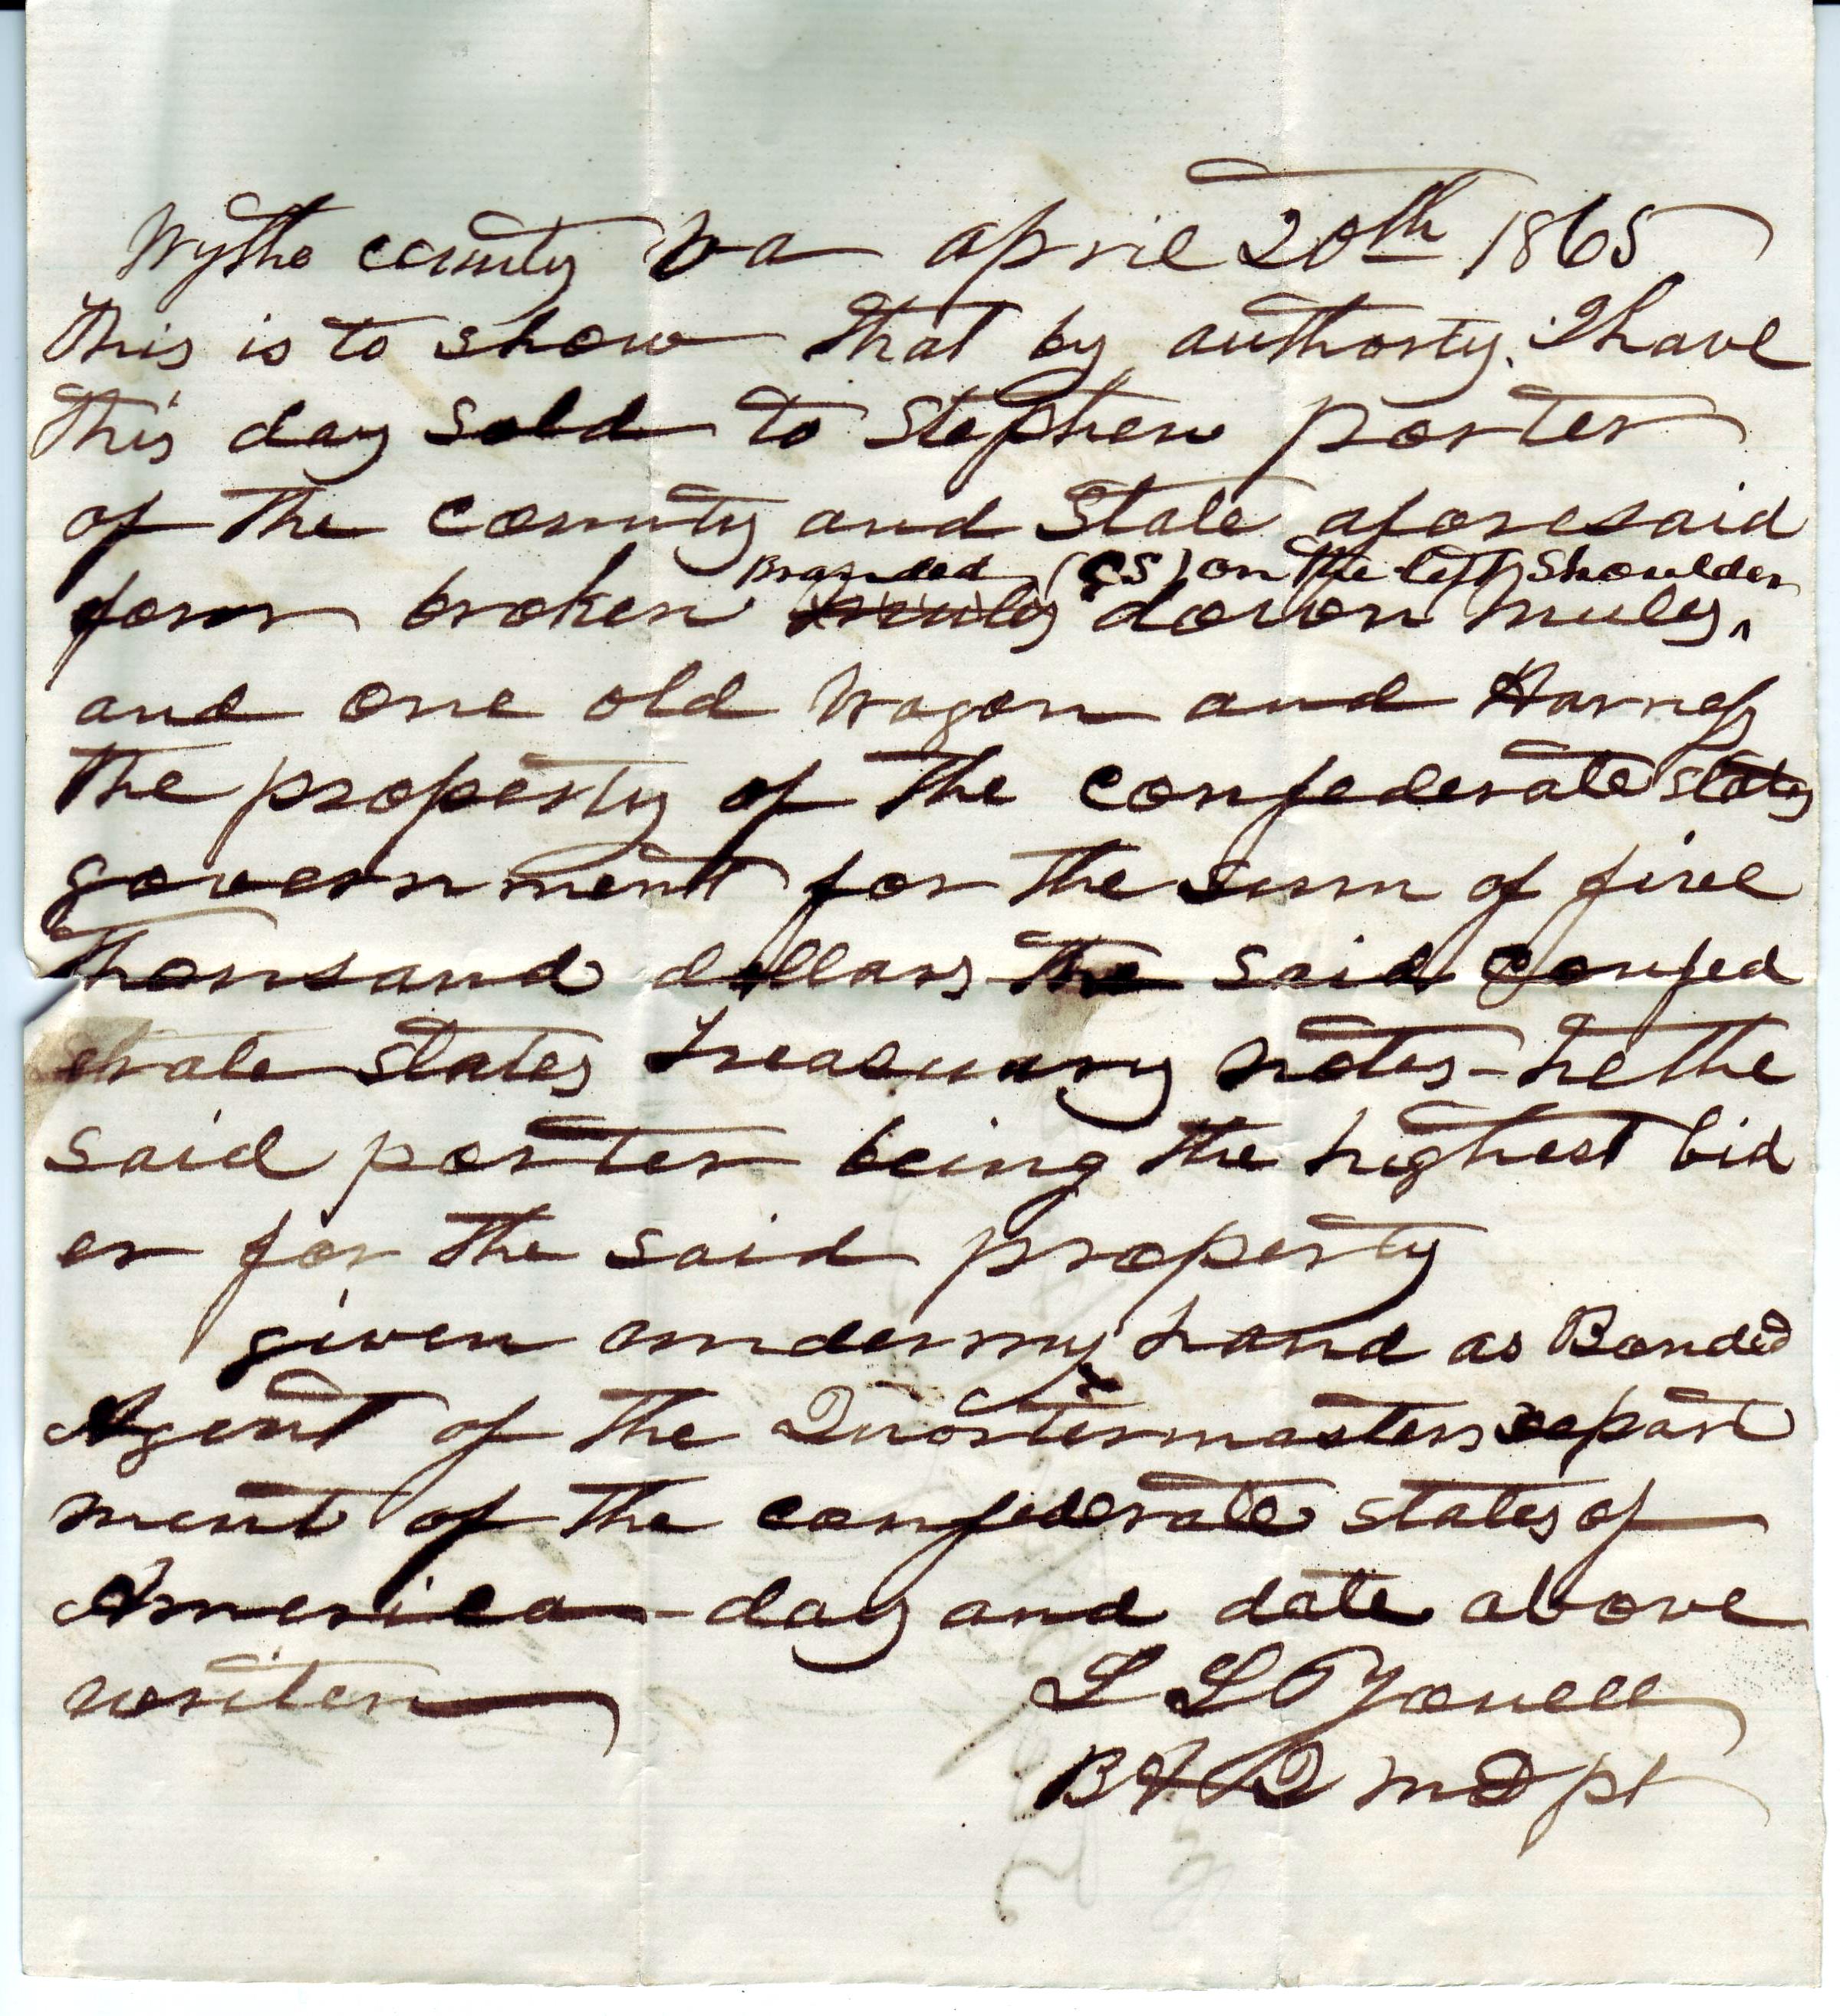 Wythe county Va april 20th 1865
This is to show that by authorty I have
this day sold to Stephen porter
of the county and State aforesaid
Branded (CS) on the left Shoulder
four broken mules down mules,
and one old Wagon and Harness
the property of the confederate states
government for the sum of five
thousand dollars the said confed
erate states Treasuary notes - he the
said porter being the highest bid
er for the said property
given under my hand as Bonded
Agent of the Quortermasters depart
ment of the confederate states of
America - day and date above
writen
L L
B A Q M D pt